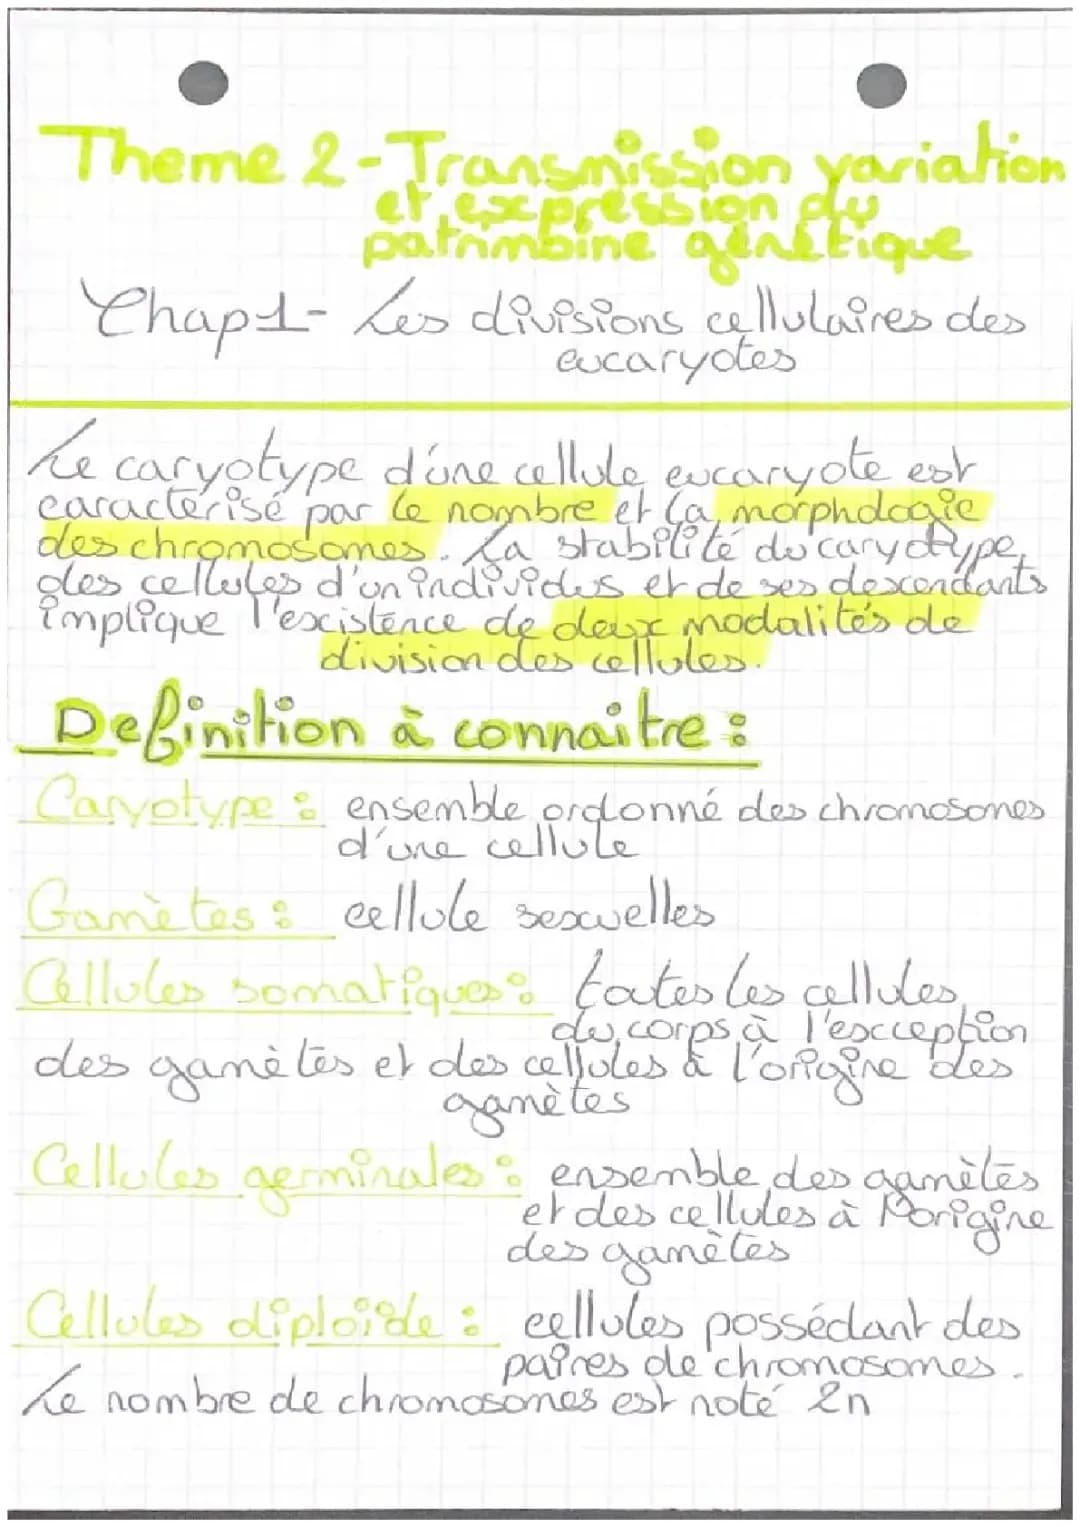 Theme 2 - Transmission variation
et expression du
patrimoine génétique
Chap 1 - Les divisions cellulaires des
eucaryotes
Le caryotype d'une cellule eucaryote est
caractérisé par le nombre et la morphologie
des chromosomes. La stabilité du caryotype
des cellules d'un individus et de ses descendants
implique l'existence de deux modalités de
division des cellules.
Definition à connaitre :
Caryotype : ensemble ordonné des chromosomes
d'une cellule
Gamètes : cellule sexuelles
Cellules somatiques : toutes les cellules
du corps à l'exception
des gamètes et des cellules à l'origine des
gamètes
Cellules germinales : ensemble des gamètes
et des cellules à l'origine
des gamètes
Cellules diploïde : cellules possédant des
paires de chromosomes.
Le nombre de chromosomes est noté 2n